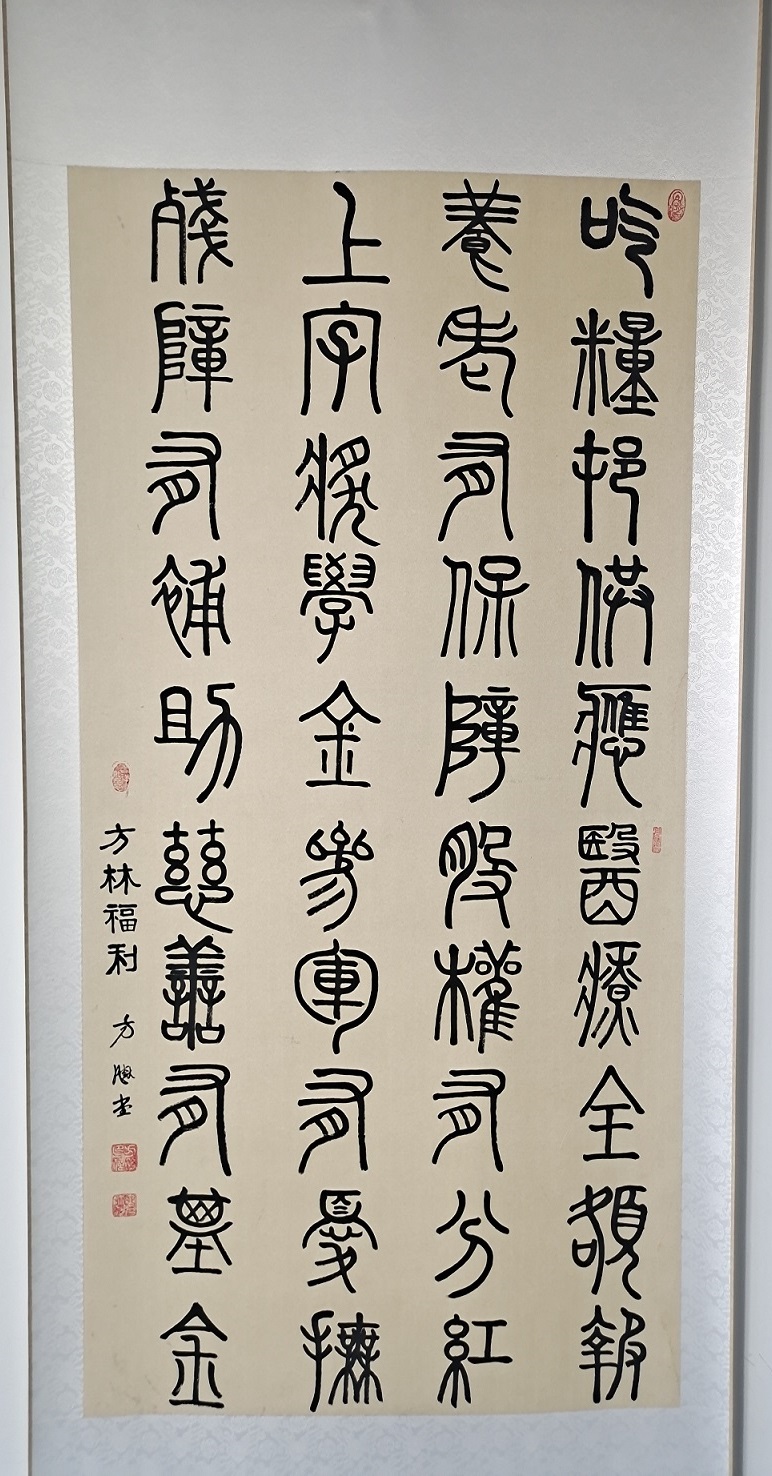 吃糧邨供應醫療全額報
養老有保障股權有分紅
上字獎學金參軍有憂撫
殘障有補助慈善有基金
方林福利 方 书